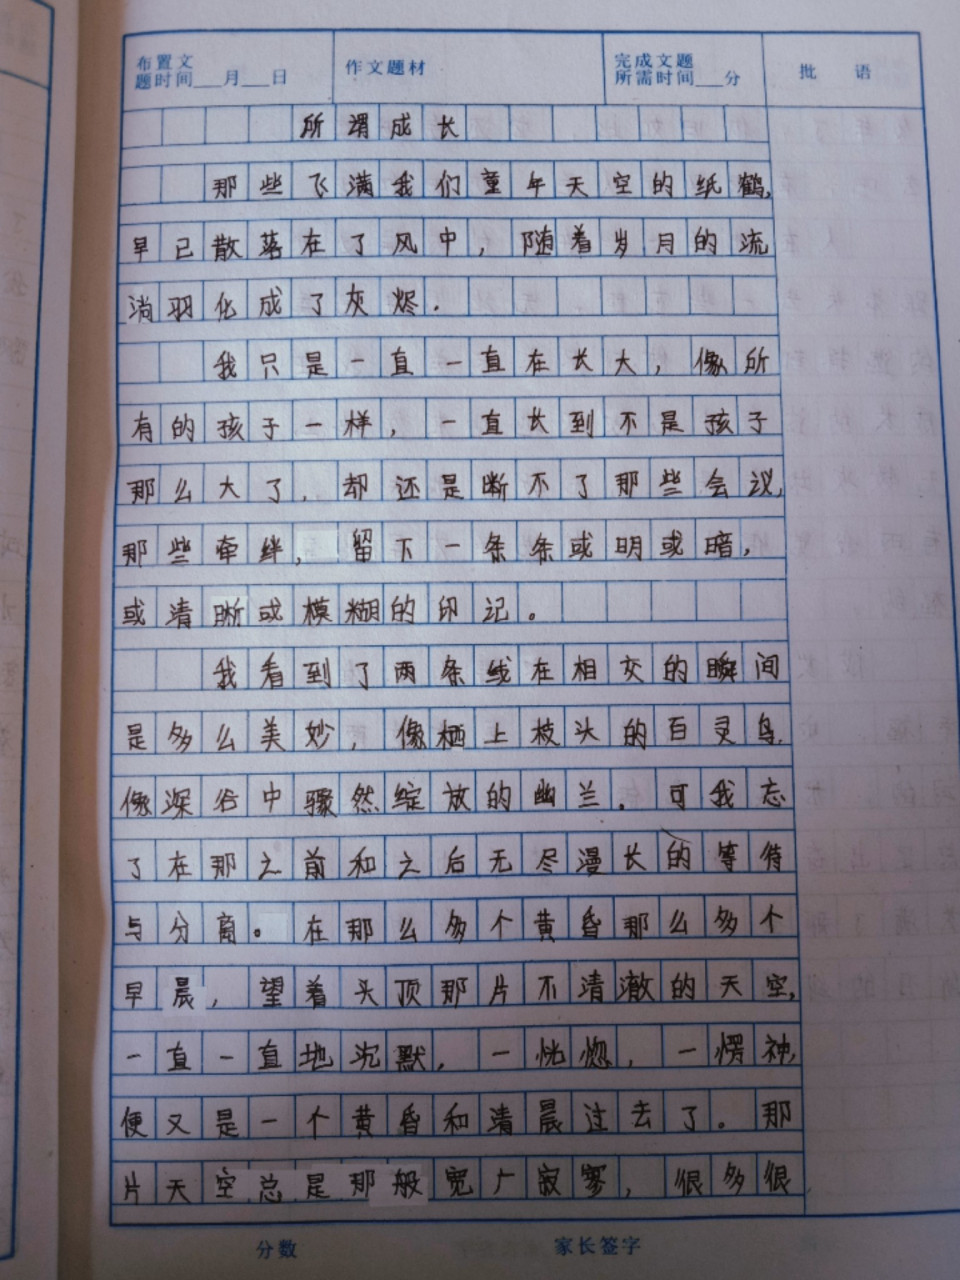 布置文
题时间___月___日
作文题材
完成文题
所需时间___分
批 语
所谓成长
那些飞满我们童年天空的纸鹤,
早已散落在了风中，随着岁月的流
淌羽化成了灰烬.
我只是一直一直在长大，像所
有的孩子一样，一直长到不是孩子
那么大了，却还是断不了那些会议,
那些牵绊，留下一条条或明或暗，
或清晰或模糊的印记。
我看到了两条线在相交的瞬间
是多么美妙，像栖上枝头的百灵鸟,
像深谷中骤然绽放的幽兰.可我忘
了在那之前和之后无尽漫长的等待
与分离。在那么多个黄昏那么多个
早晨，望着头顶那片不清澈的天空,
一直一直地沉默，一恍惚，一愣神,
便又是一个黄昏和清晨过去了。那
片天空总是那般宽广寂寥，很多很
分数
家长签字